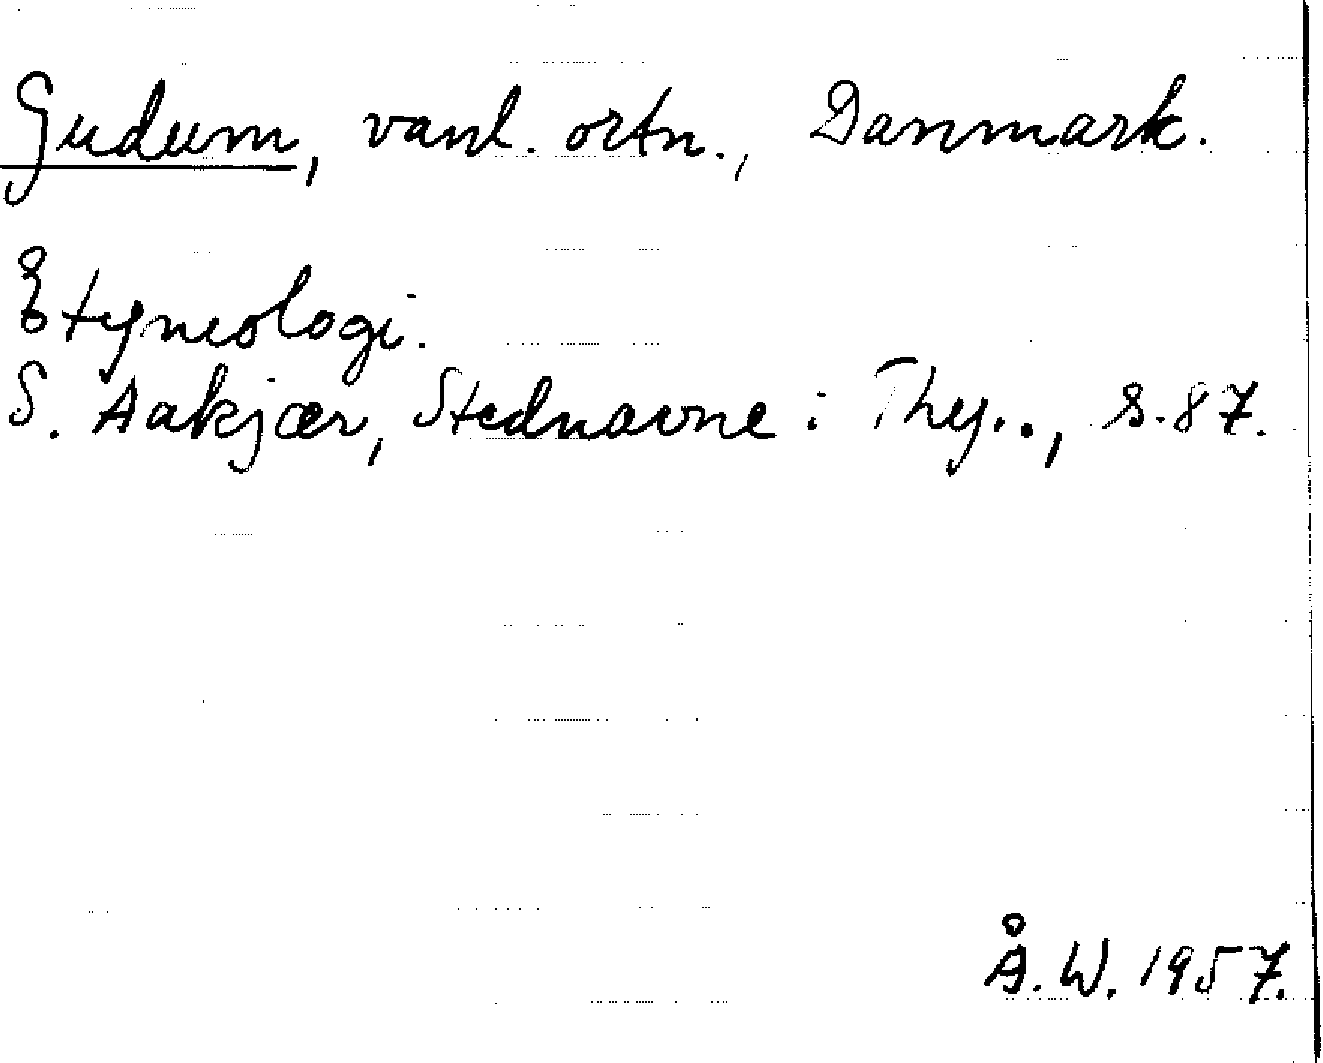 Gudum, vanl. ortn., Danmark.
Etymologi.
S. Aakjær, Stednavne i Thy.., s. 87.
Å. W. 1957.